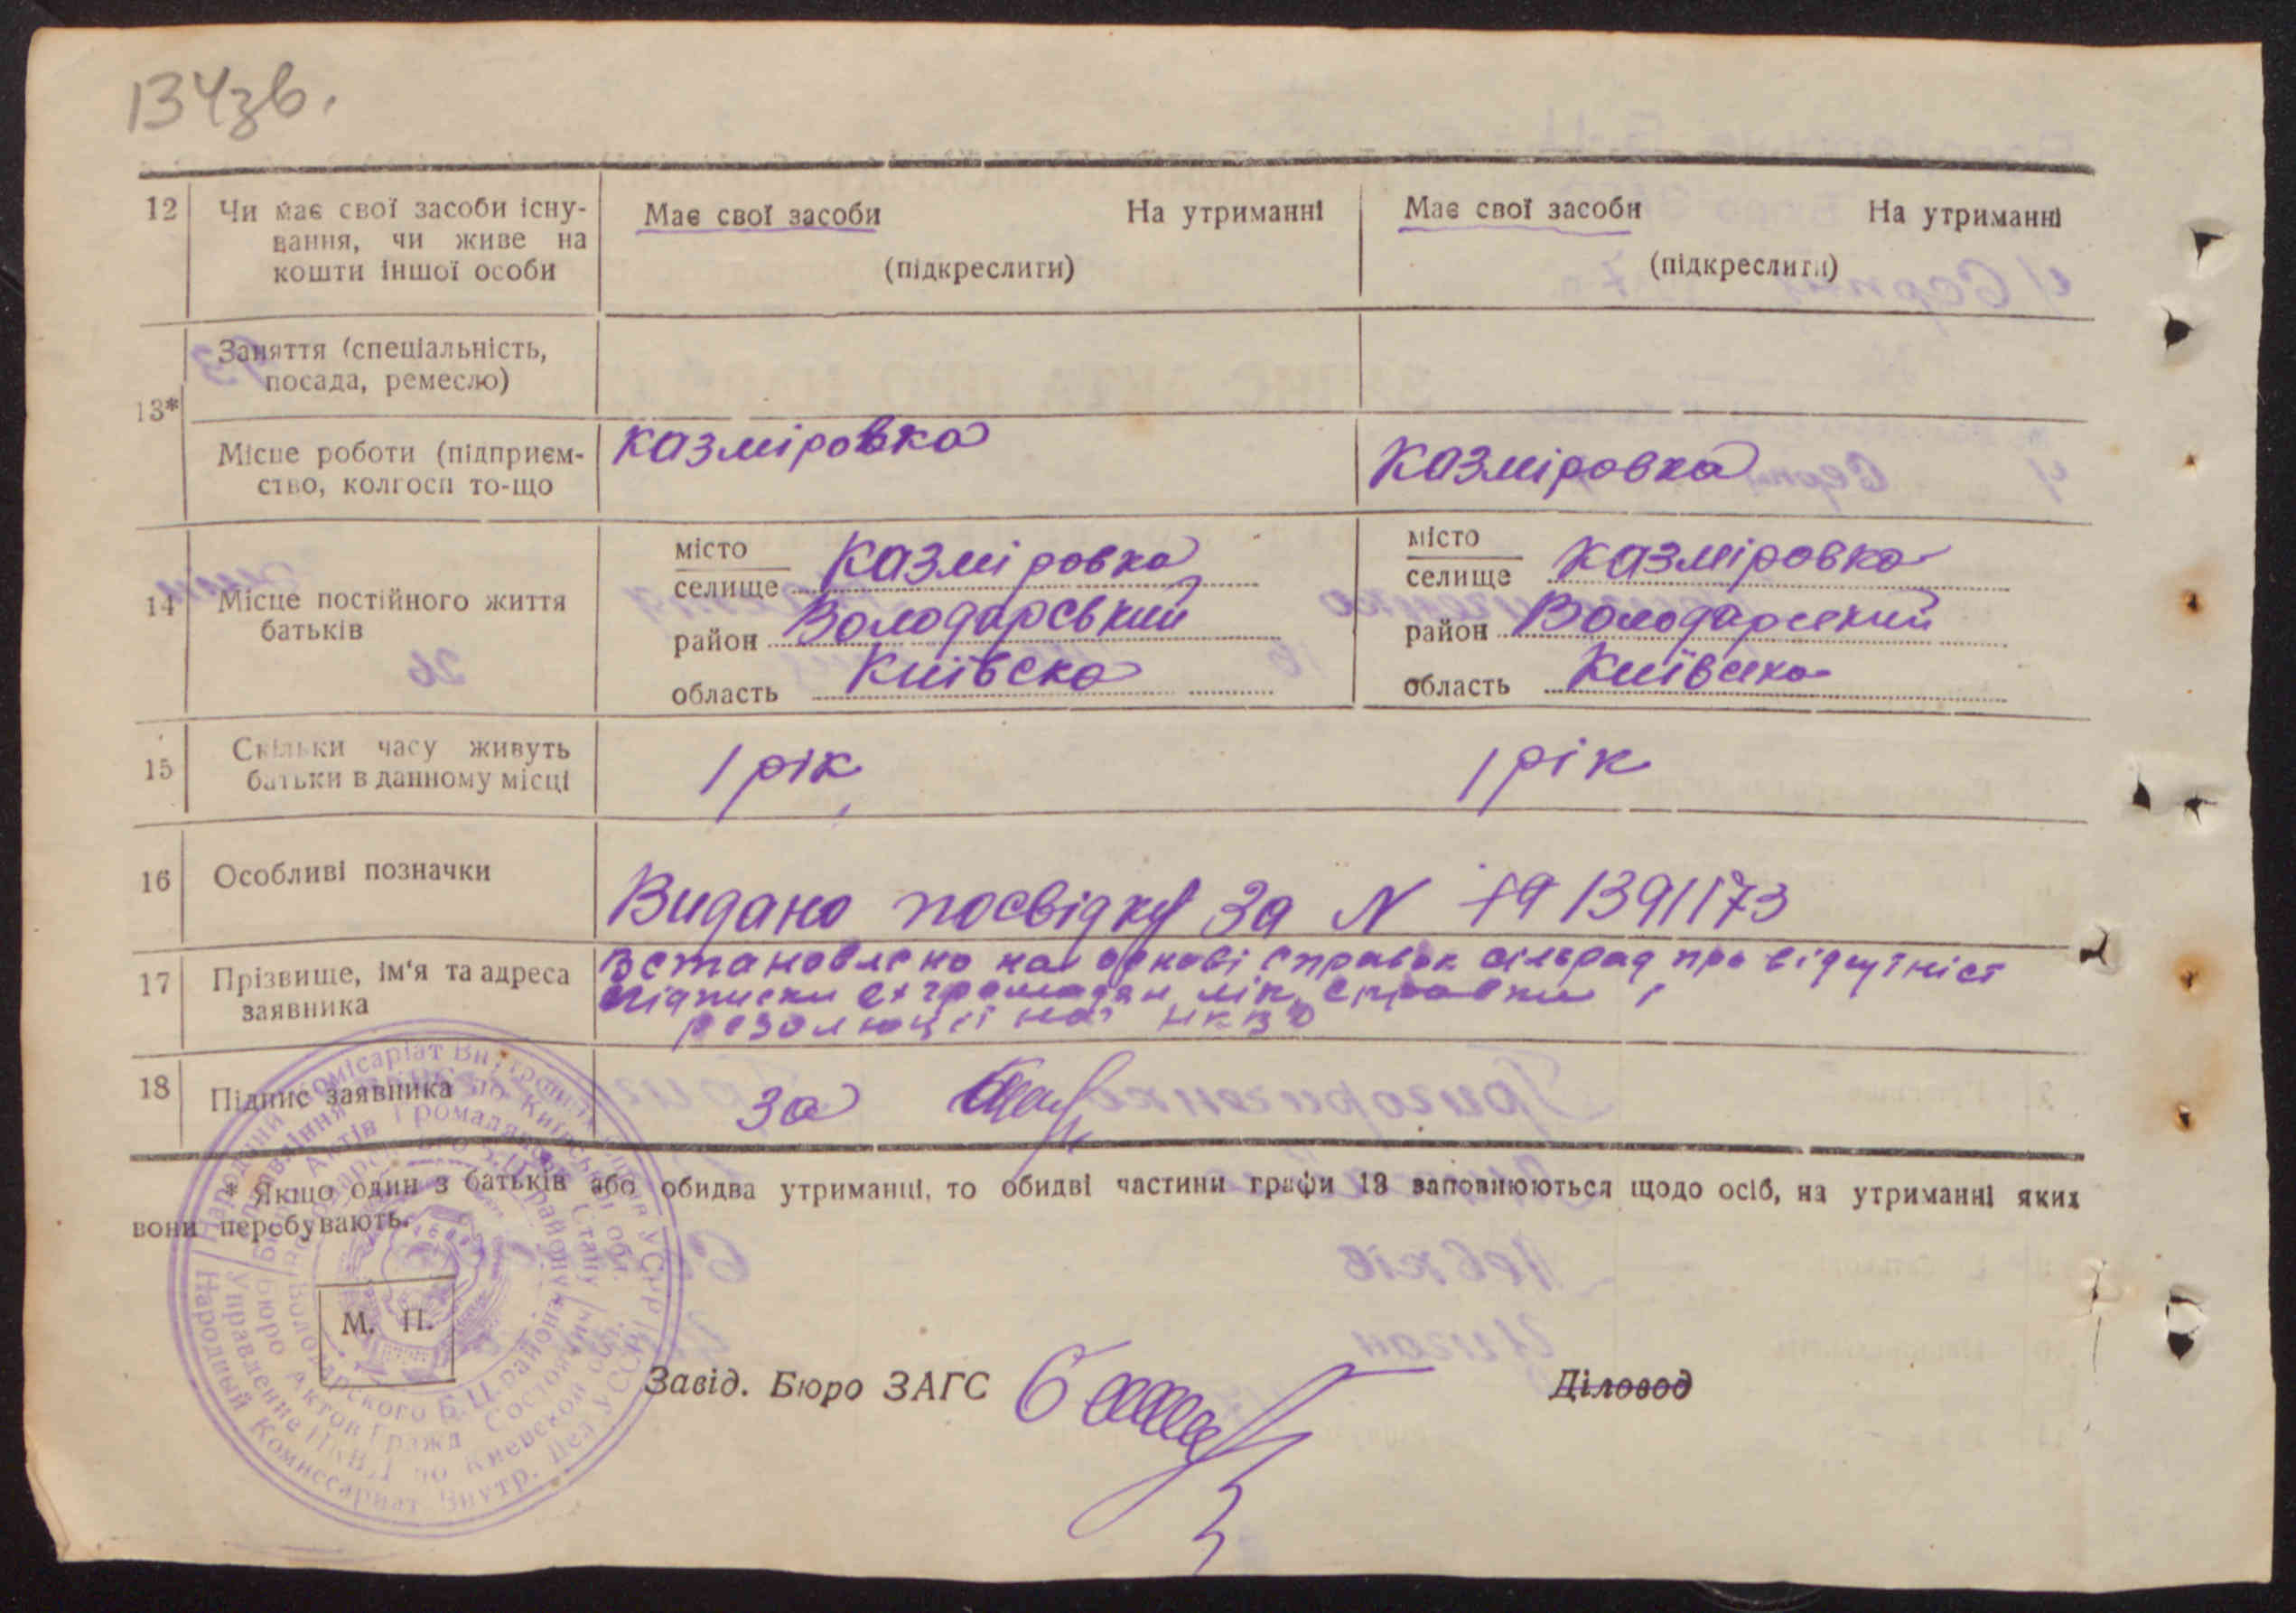 134зв.
12 Чи має свої засоби існу-
вання, чи живе на
кошти іншої особи
Має свої засоби На утриманні
(підкреслити)
Має свої засоби На утриманні
(підкреслити)
13*
Заняття (спеціальність,
посада, ремесло)
Місце роботи (підприєм-
ство, колгосп то-що
Казміровка
Казміровка
14 Місце постійного життя
батьків
місто
селище Казміровка
район Володарський
область Київска
місто
селище Казміровка
район Володарский
область Київска
15 Скільки часу живуть
батьки в данному місці
1 рік
1 рік
16 Особливі позначки
Видано посвідку за N 1391173
17 Прізвище, ім'я та адреса
заявника
Встановлено на основі справок сільрад про відсутніст
підписки справки
резолюції нач НКВД
18 Підпис заявника
За
* Якщо один з батьків або обидва утриманці, то обидві частини графи 13 заповнюються щодо осіб, на утриманні яких
вони перебувають.
М. П.
Завід. Бюро ЗАГС
Діловод
Народний Комісаріат Внутрошніх Справ УСРР
Управління по Київській обл.
Актів Громадянск. Стану
Володарского Б.Ц. района
Бюро Актов Гражд. Состояния
Управление НКВД по Киевской обл.
Народный Комиссариат Внутр. Дел УССР